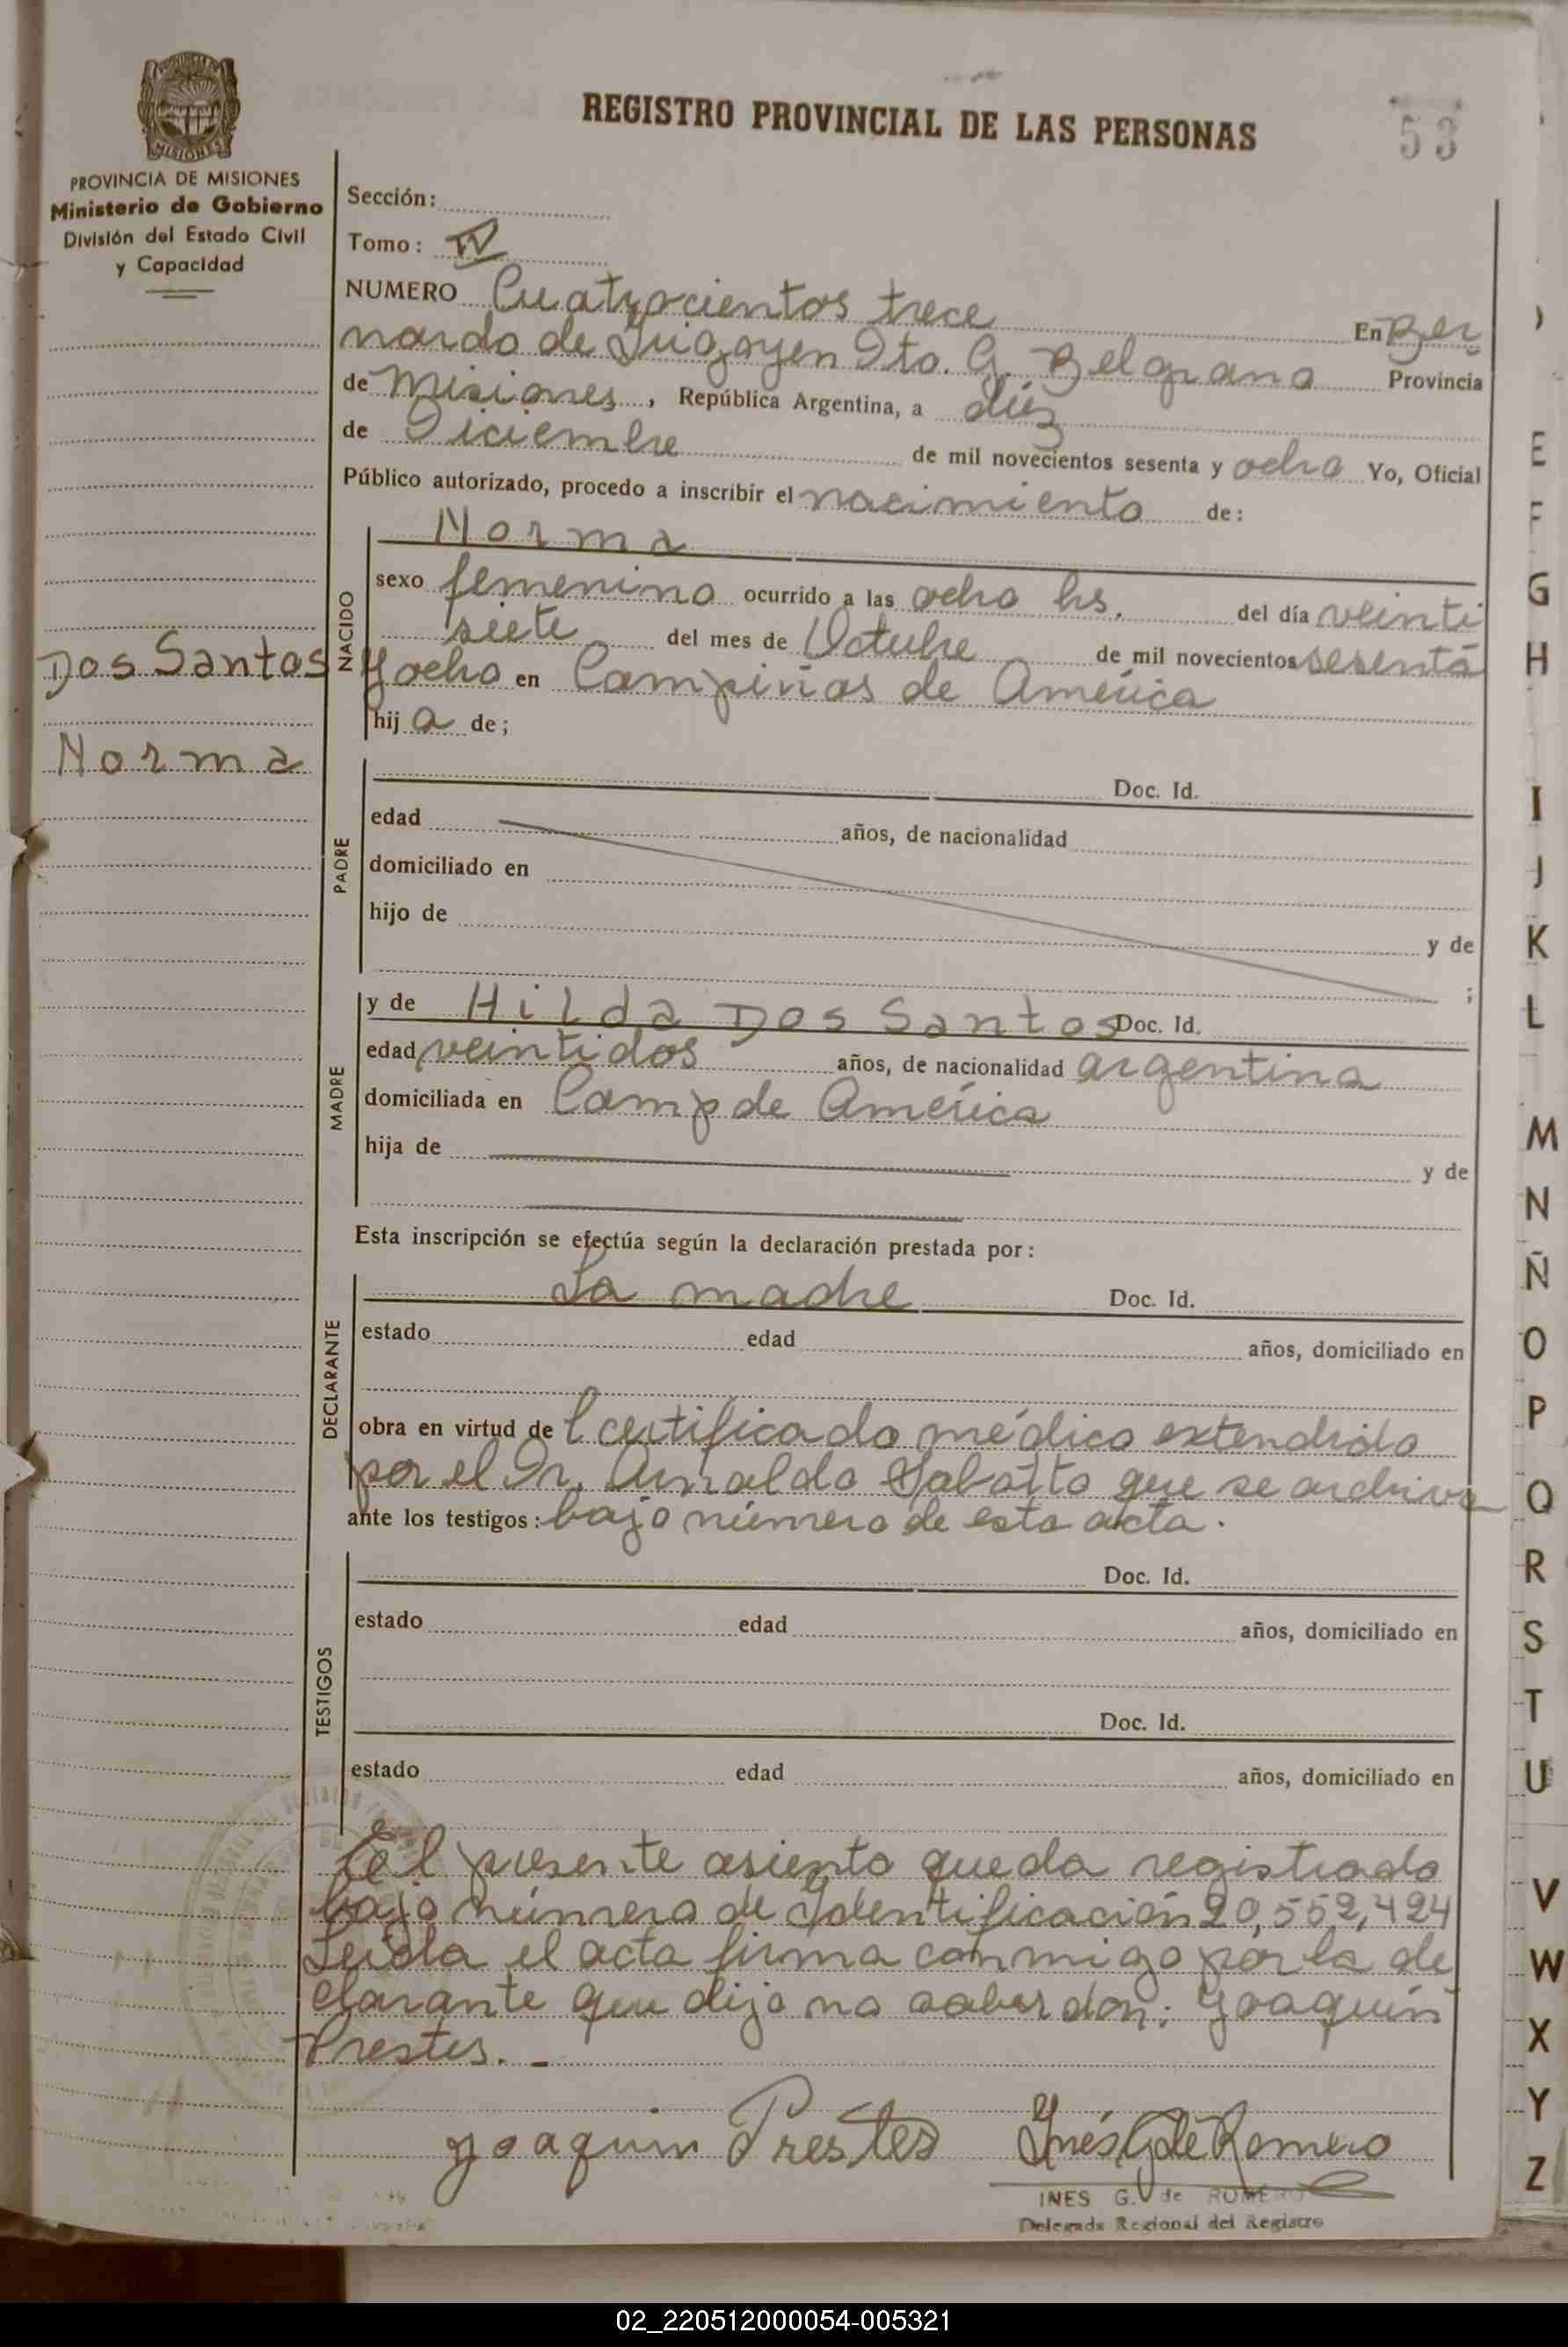 REGISTRO PROVINCIAL DE LAS PERSONAS
53
PROVINCIA DE MISIONES
Ministerio de Gobierno
División del Estado Civil
y Capacidad
Sección:
Tomo: IV
NUMERO Cuatrocientos trece En Ber
nardo de Irigoyen Dto. G. Belgrano Provincia
de Misiones, República Argentina, a diéz
de Diciembre de mil novecientos sesenta y ocho Yo, Oficial
Público autorizado, procedo a inscribir el nacimiento de:
NACIDO
Norma
sexo femenino ocurrido a las ocho hs. del día veinti
siete del mes de Octubre de mil novecientos sesenta
Dos Santos
y ocho en Campiñas de América
hija de;
Norma
PADRE
Doc. Id.
edad años, de nacionalidad
domiciliado en
hijo de y de
;
MADRE
y de Hilda Dos Santos Doc. Id.
edad veintidos años, de nacionalidad argentina
domiciliada en Camp de América
hija de y de
Esta inscripción se efectúa según la declaración prestada por:
DECLARANTE
La madre Doc. Id.
estado edad años, domiciliado en
obra en virtud de l certificado médico extendido
por el Dr. Arnaldo Sabatto que se archiva
ante los testigos: bajo número de esta acta.
TESTIGOS
Doc. Id.
estado edad años, domiciliado en
Doc. Id.
estado edad años, domiciliado en
El presente asiento queda registrado
bajo número de Identificación 20,552,424
Leida el acta firma conmigo por la de
clarante que dijo no saber don: Joaquín
Prestes. -
Joaquin Prestes Inés G de Romero
INES G. de ROMERO
Delegada Regional del Registro
E
F
G
H
I
J
K
L
M
N
Ñ
O
P
Q
R
S
T
U
V
W
X
Y
Z
02_220512000054-005321